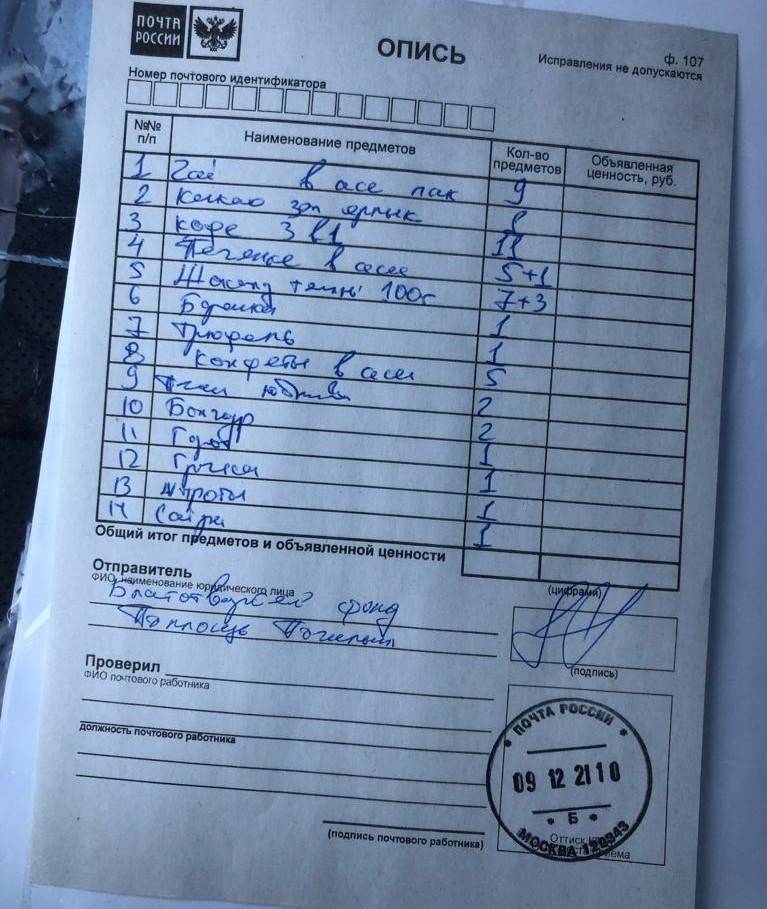 ПОЧТА
РОССИИ
ОПИСЬ
ф. 107
Исправления не допускаются
Номер почтового идентификатора
№№ п/п Наименование предметов Кол-во предметов Объявленная ценность, руб.
1 Чай в асс пак 9
2 Какао
3 кофе 3 в 1
4 Печенье в ассе 5+1
5 Шоколад темн 100г 7+3
6 1
7 Трюфель 1
8 Конфеты в ассе 5
9 2
10 Булгур 2
11 Горох 1
12 Гречка 1
13 Шпроты 1
14 Сайра 1
Общий итог предметов и объявленной ценности
(цифрами)
Отправитель
ФИО, наименование юридического лица
фонд
Проверил
ФИО почтового работника
(подпись)
должность почтового работника
(подпись почтового работника)
ПОЧТА РОССИИ
09 12 21 10
Б
МОСКВА
Оттиск